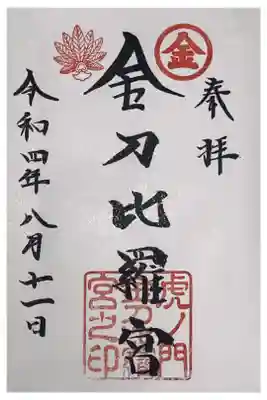 奉拝
金
金刀比羅宮
虎ノ門
宮之印
令和四年八月十一日